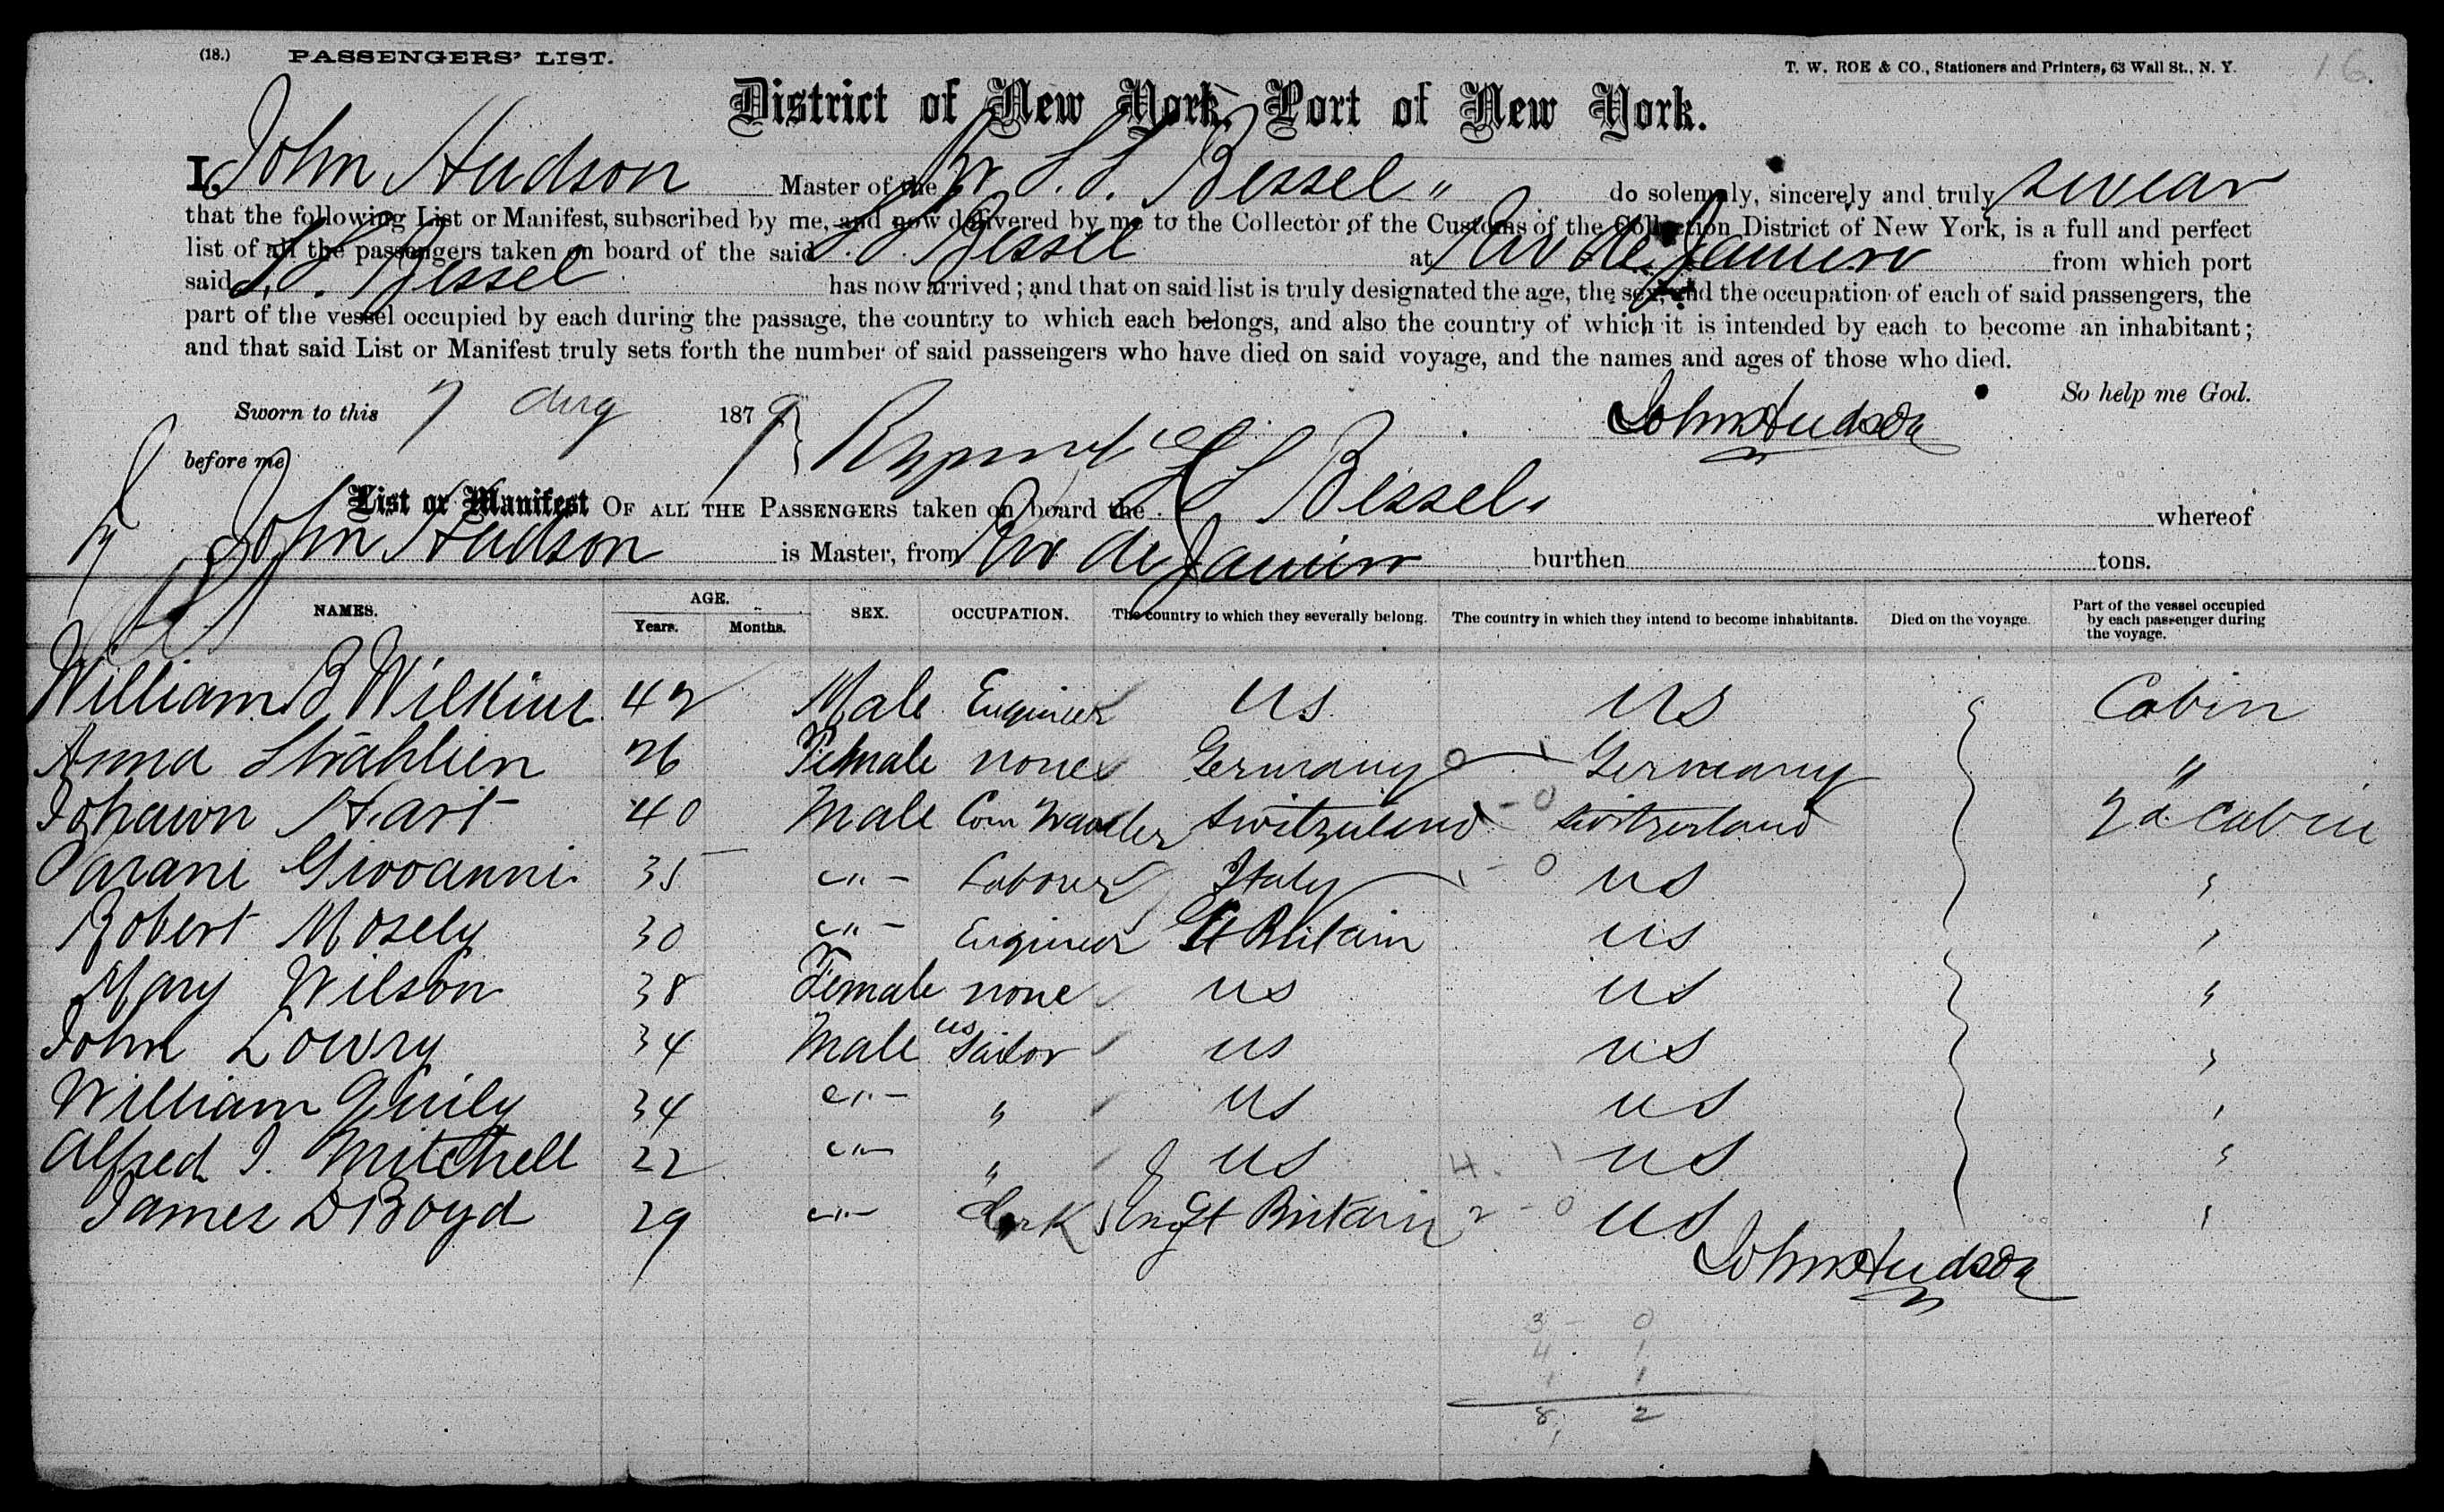 (18.) PASSENGERS' LIST. T. W. ROE & CO., Stationers and Printers, 63 Wall St., N. Y. 16.
District of New York, Port of New York.
I, John Hudson Master of the Br S. S. Bessel " do solemnly, sincerely and truly swear
that the following List or Manifest, subscribed by me, and now delivered by me to the Collector of the Customs of the Collection District of New York, is a full and perfect
list of all the passengers taken on board of the said S. S. Bessel at Rio de Janeiro from which port
said S. S. Bessel has now arrived; and that on said list is truly designated the age, the sex, and the occupation of each of said passengers, the
part of the vessel occupied by each during the passage, the country to which each belongs, and also the country of which it is intended by each to become an inhabitant;
and that said List or Manifest truly sets forth the number of said passengers who have died on said voyage, and the names and ages of those who died.
So help me God.
Sworn to this 7 Aug 1879 John Hudson
before me
List or Manifest OF ALL THE PASSENGERS taken on board the S S Bessel whereof
John Hudson is Master, from Rio de Janeiro burthen tons.
NAMES. AGE. Years. Months. SEX. OCCUPATION. The country to which they severally belong. The country in which they intend to become inhabitants. Died on the voyage. Part of the vessel occupied by each passenger during the voyage.
William B Wilkins 42 Male Engineer US US Cabin
Anna Strählien 26 Female none Germany 0 1 Germany "
Johann Hart 40 Male Com Traveller Switzerland - 0 Switzerland 2d Cabin
Parani Giovanni 35 " Labourer Italy - 0 US "
Robert Mosely 30 " Engineer Gt Britain US "
Mary Wilson 38 Female none US US "
John Lowry 34 Male US Sailor US US "
William Quily 34 " " US US "
Alfred J. Mitchell 22 " " US 4. 1 US "
James D Boyd 29 " Clerk Gt Britain 2 - 0 US "
John Hudson
3 - 0
4 . 1
1 1
8 2
1